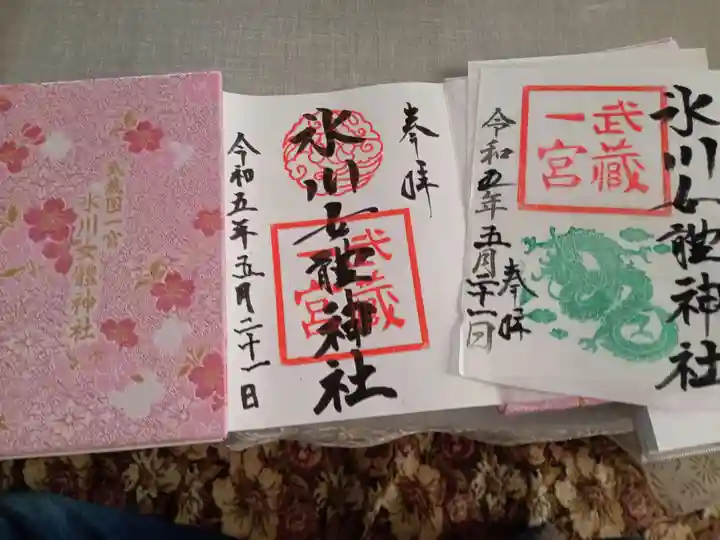 武蔵国一宮
氷川女體神社
奉拝
氷川女體神社
武蔵
一宮
令和五年五月二十一日
氷川女體神社
武蔵
一宮
奉拝
令和五年五月二十一日